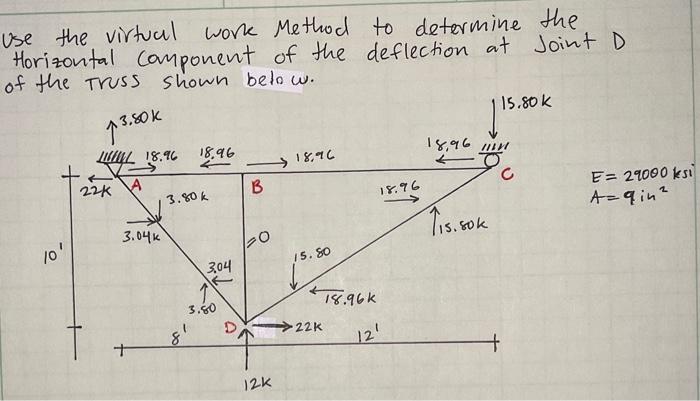 Use the virtual work Method to determine the
Horizontal Component of the deflection at Joint D
of the Truss shown below.
15.80k
3.80k
18.96 18.96 18.96 18.96
22k A B C
E = 29000 ksi
A = 9 in²
3.80k 18.96
3.04k 15.80k
10' 0
3.04 15.80
3.80 18.96k
D 22k
8' 12'
12k